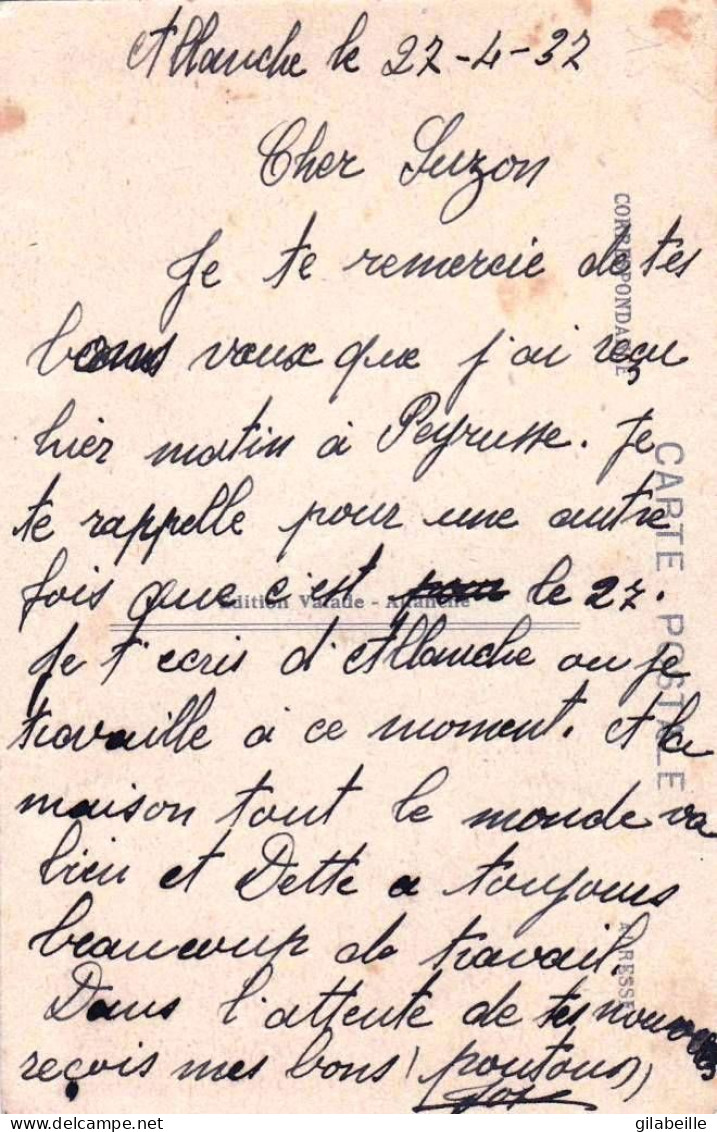 Allanche le 27-4-37
Cher Suzon
Je te remercie de tes
bons vœux que j'ai reçu
hier matin à Peyrusse. Je
te rappelle pour une autre
fois que c'est pour le 27.
Je t'ecris d'Allanche ou je
travaille à ce moment. A la
maison tout le monde va
bien et Dette a toujours
beaucoup de travail.
Dans l'attente de tes nouvelles
reçois mes bons (poutous)
CORRESPONDANCE
CARTE POSTALE
ADRESSE
Edition Valade - Allanche
delcampe.net
gilabeille